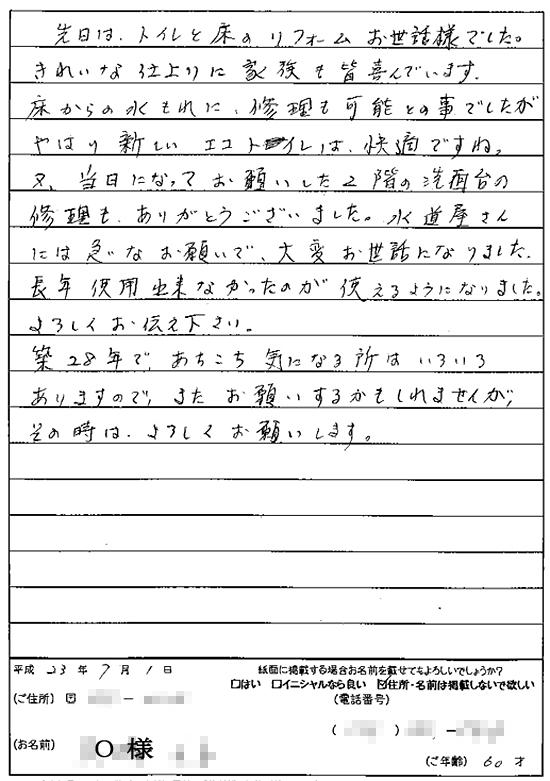 先日は、トイレと床のリフォームお世話様でした。
きれいな仕上りに家族も皆喜んでいます。
床からの水もれに、修理も可能との事でしたが
やはり新しいエコトイレは、快適ですね。
又、当日になってお願いした2階の洗面台の
修理も、ありがとうございました。水道屋さん
には急なお願いで、大変お世話になりました。
長年使用出来なかったのが使えるようになりました。
よろしくお伝え下さい。
築28年で、あちこち気になる所はいろいろ
ありますので、またお願いするかもしれませんが、
その時は、よろしくお願いします。
平成 23年 7月 1日
紙面に掲載する場合お名前を載せてもよろしいでしょうか?
□はい □イニシャルなら良い ☑住所・名前は掲載しないで欲しい
(ご住所) 〒 －
(電話番号)
( ) －
(お名前) O 様
(ご年齢) 60才